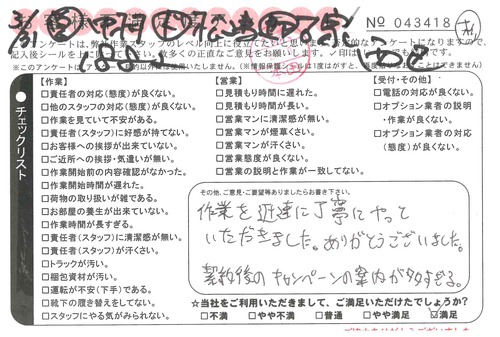 № 043418
アンケートは、弊社作業スタッフのレベル向上に役立てたいと思い
記入後シールを上に
※このアンケートは、
チェックリスト
【作業】
□責任者の対応(態度)が良くない。
□他のスタッフの対応(態度)が良くない。
□作業を見ていて不安がある。
□責任者(スタッフ)に好感が持てない。
□お客様への挨拶が出来ていない。
□ご近所への挨拶・気遣いが無い。
□作業開始前の内容確認がなかった。
□作業開始時間が遅れた。
□荷物の取り扱いが雑である。
□お部屋の養生が出来ていない。
□作業時間が長すぎる。
□責任者(スタッフ)に清潔感が無い。
□責任者(スタッフ)が汗くさい。
□トラックが汚い。
□梱包資材が汚い。
□運転が不安(下手)である。
□靴下の履き替えをしてない。
□スタッフにやる気がみられない。
【営業】
□見積もり時間に遅れた。
□見積もり時間が長い。
□営業マンに清潔感が無い。
□営業マンが煙草くさい。
□営業マンが汗くさい。
□営業態度が良くない。
□営業の説明と作業が一致してない。
【受付・その他】
□電話の対応が良くない。
□オプション業者の説明
・作業が良くない。
□オプション業者の対応
(態度)が良くない。
その他、ご意見・ご要望等ありましたらお書き下さい。
作業を迅速に丁寧にやって
いただきました。ありがとうございました。
契約後のキャンペーンの案内が多すぎる。
☆当社をご利用いただきまして、ご満足いただけたでしょうか?
□不満 □やや不満 □普通 □やや満足 □満足